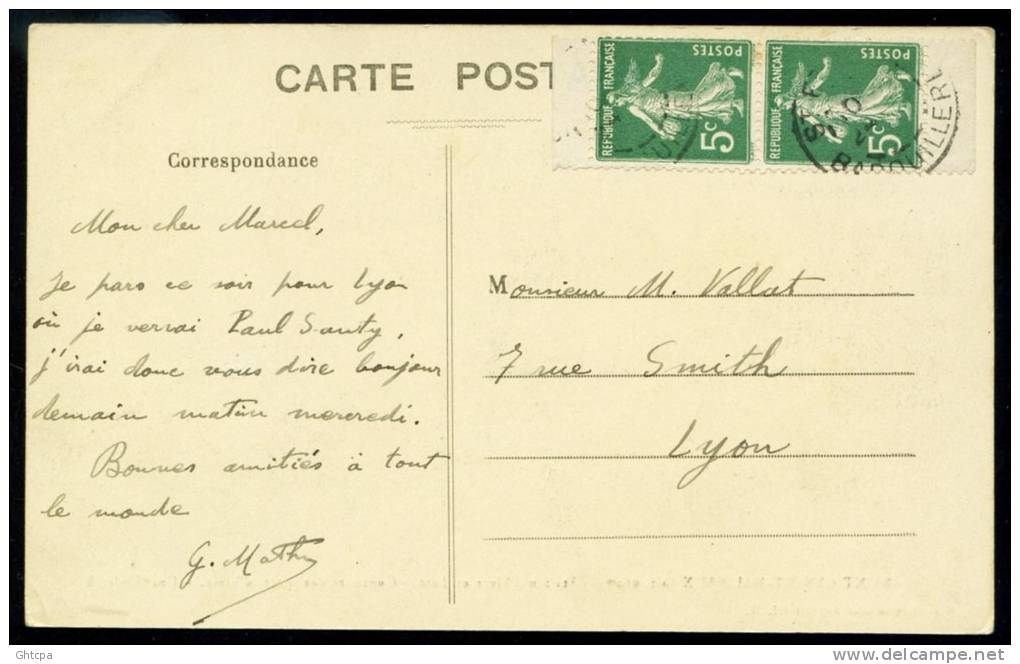 CARTE POST
RÉPUBLIQUE FRANÇAISE
POSTES
5c
RÉPUBLIQUE FRANÇAISE
POSTES
5c
Correspondance
Mon cher Marcel,
Je pars ce soir pour Lyon
où je verrai Paul Santy,
j'irai donc vous dire bonjour
demain matin mercredi.
Bonnes amitiés à tout
le monde
G. Mathy
Monsieur M. Vallat
7 rue Smith
Lyon
Ghtcpa
www.delcampe.net